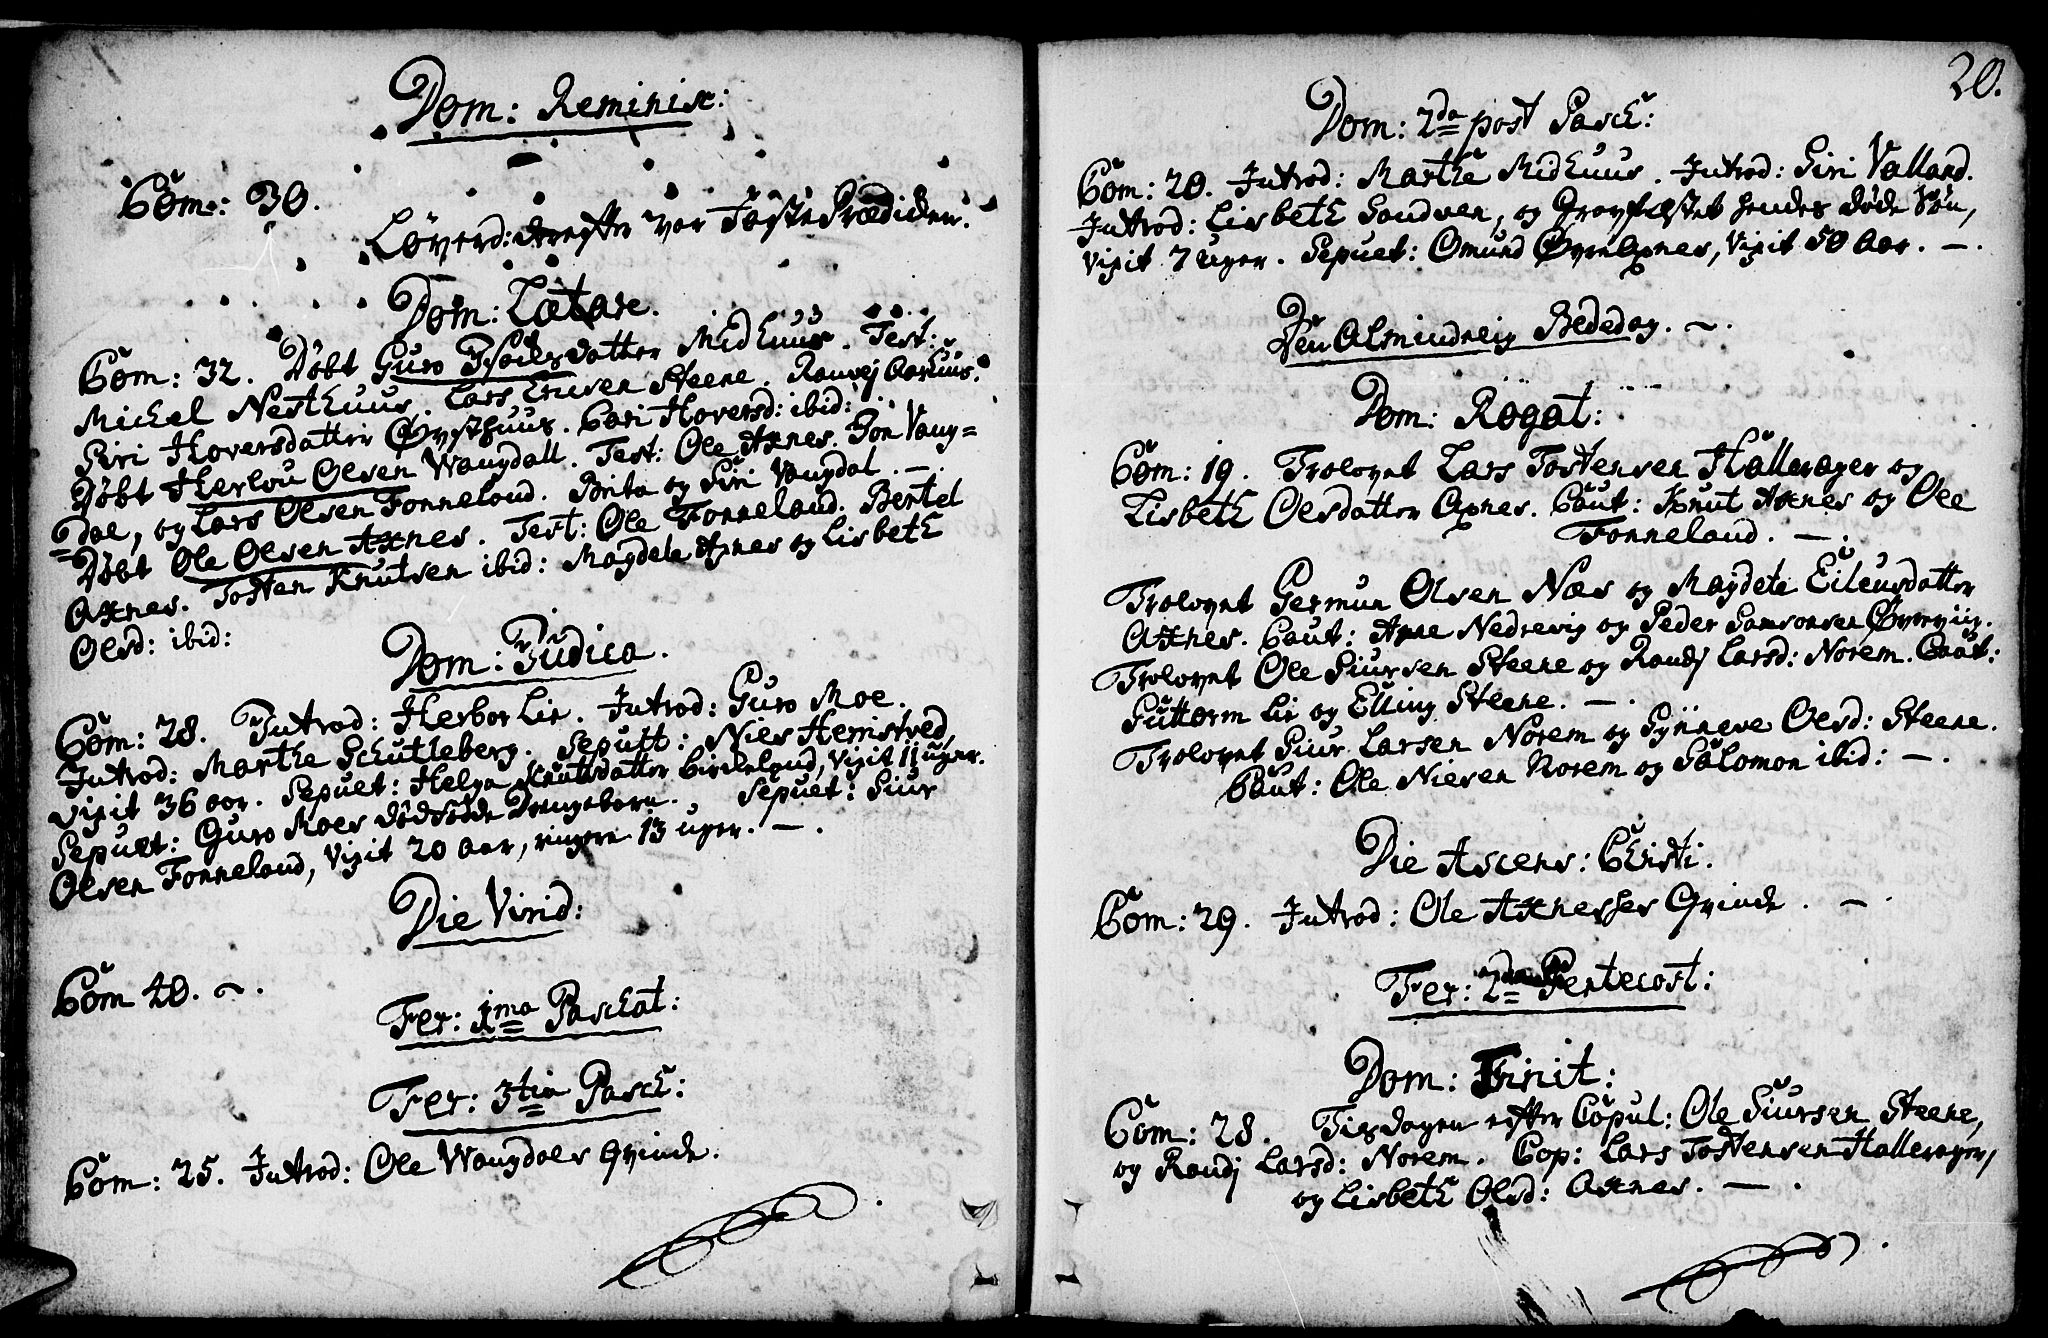 Dom: Reminisc:
Com: 30.
Løverd: derefter var FastePrædiken.
Dom: Lætare.
Com: 32. Døbt Guro Nielsdatter Midhuus. Test:
Michel Nesthuus. Lars Ericsen Steene. Ranvej Aarhuus.
Siri Haversdatter Øvsthuus. Cari Haversd: ibid:
Døbt Herlou Olsen Wangdall. Test: Ole Axnes. Jon Vang=
=dal, og Lars Olsen Fonneland. Brita og Siri Vangdal. —.
Døbt Ole Olsen Axnes. Test: Ole Fonneland. Bertel
Axnes. Tosten Knutsen ibid: Magdele Axnes og Lisbeth
Olsd: ibid:
Dom: Judica.
Com: 28. Introd: Herbor Lie. Introd: Guro Moe.
Introd: Marthe Schutleberg. Sepult: Niels Hemstved,
vixit 36 aar. Sepult: Helga Knutsdatter Birkeland, vixit 11 uger.
Sepult: Guro Moes dødfødde Drengebarn. Sepult: Siur
Olsen Fonneland, vixit 20 aar, ringere 13 uger. —.
Die Virid:
Com 40. ~.
Fer: 1ma Paschat:
Fer: 3tia Pasch:
Com: 25. Introd: Ole Wangdals Qvinde.
20.
Dom: 2da post Pasch:
Com: 20. Introd: Marthe Midhuus. Introd: Siri Valland.
Introd: Lisbeth Sandven, og Gravfæstet hendes døde Søn,
vixit 7 uger. Sepult: Omund ØvreAxnes, vixit 50 Aar. —.
Den Almindelig Bededag. ~.
Dom: Rogat:
Com: 19. Trolovet Lars Tostensen Hallerager og
Lisbeth Olsdatter Axnes. Caut: Knut Axnes og Ole
Fonneland. —.
Trolovet Germun Olsen Næs og Magdele Eilensdatter
Axnes. Caut: Arne Nedrevig og Peder Samsonsen Øvrevig.
Trolovet Ole Siursen Steene og Randj Larsd: Norem. Caut:
Guttorm Lie og Elling Steene. —.
Trolovet Siur Larsen Norem og Synneve Olsd: Steene.
Caut: Ole Nielsen Norem og Salomon ibid: —.
Die Ascens: Christi.
Com: 29. Introd: Ole Axnesses Qvinde. —.
Fer: 2da Pentecost:
Dom: Trinit:
Com: 28. Tisdagen efter Copul: Ole Siursen Steene,
og Randj Larsd: Norem. Cop: Lars Tostensen Hallerager,
og Lisbeth Olsd: Axnes. —.